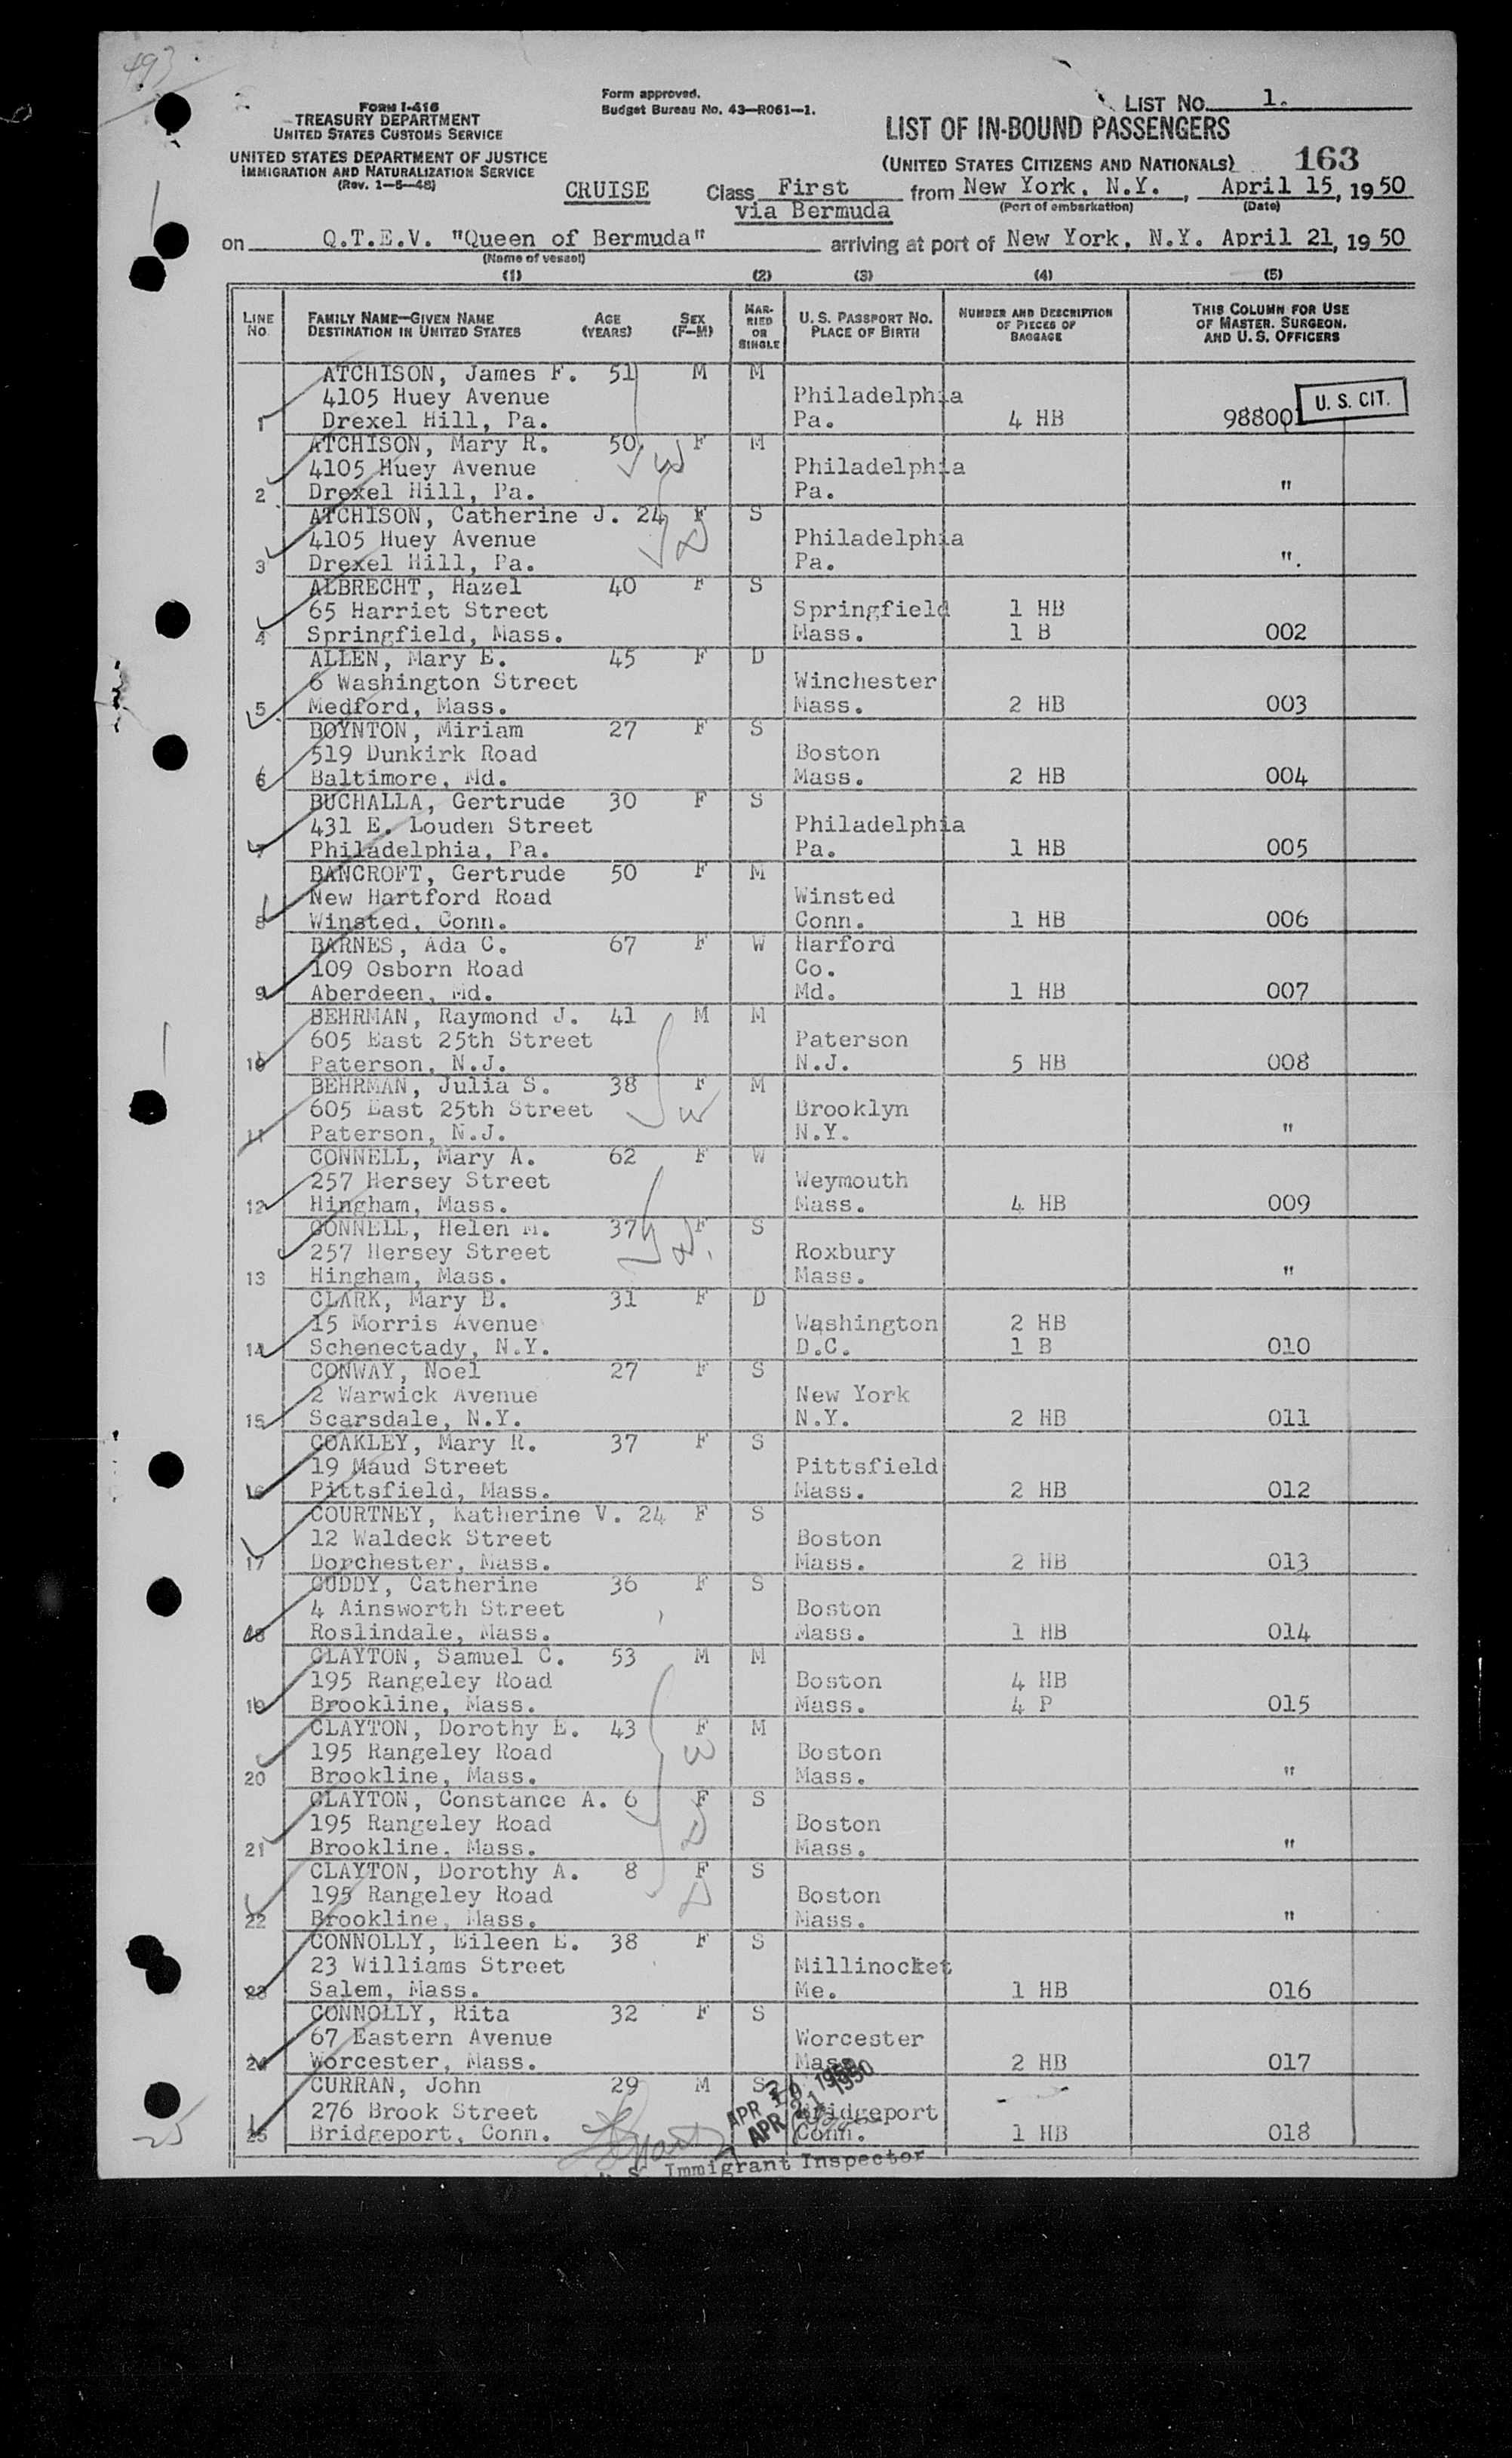 493
FORM I-416
TREASURY DEPARTMENT
UNITED STATES CUSTOMS SERVICE
UNITED STATES DEPARTMENT OF JUSTICE
IMMIGRATION AND NATURALIZATION SERVICE
(Rev. 1-5-48)
Form approved.
Budget Bureau No. 43-R061-1.
LIST NO. 1.
LIST OF IN-BOUND PASSENGERS
(UNITED STATES CITIZENS AND NATIONALS) 163
CRUISE Class First from New York, N.Y., April 15, 1950
via Bermuda (Port of embarkation) (Date)
on Q.T.E.V. "Queen of Bermuda" arriving at port of New York, N.Y. April 21, 1950
(Name of vessel)
(1) (2) (3) (4) (5)
LINE NO. FAMILY NAME—GIVEN NAME DESTINATION IN UNITED STATES AGE (YEARS) SEX (F—M) MARRIED OR SINGLE U. S. PASSPORT NO. PLACE OF BIRTH NUMBER AND DESCRIPTION OF PIECES OF BAGGAGE THIS COLUMN FOR USE OF MASTER, SURGEON, AND U. S. OFFICERS
ATCHISON, James F. 51 M M
4105 Huey Avenue Philadelphia
1 Drexel Hill, Pa. Pa. 4 HB 988001 U. S. CIT.
ATCHISON, Mary R. 50 F M
4105 Huey Avenue Philadelphia
2 Drexel Hill, Pa. Pa. "
ATCHISON, Catherine J. 24 F S
4105 Huey Avenue Philadelphia
3 Drexel Hill, Pa. Pa. ".
ALBRECHT, Hazel 40 F S
65 Harriet Street Springfield 1 HB
4 Springfield, Mass. Mass. 1 B 002
ALLEN, Mary E. 45 F D
6 Washington Street Winchester
5 Medford, Mass. Mass. 2 HB 003
BOYNTON, Miriam 27 F S
519 Dunkirk Road Boston
6 Baltimore, Md. Mass. 2 HB 004
BUCHALLA, Gertrude 30 F S
431 E. Louden Street Philadelphia
7 Philadelphia, Pa. Pa. 1 HB 005
BANCROFT, Gertrude 50 F M
New Hartford Road Winsted
8 Winsted, Conn. Conn. 1 HB 006
BARNES, Ada C. 67 F W Harford
109 Osborn Road Co.
9 Aberdeen, Md. Md. 1 HB 007
BEHRMAN, Raymond J. 41 M M
605 East 25th Street Paterson
10 Paterson, N.J. N.J. 5 HB 008
BEHRMAN, Julia S. 38 F M
605 East 25th Street Brooklyn
11 Paterson, N.J. N.Y. "
CONNELL, Mary A. 62 F W
257 Hersey Street Weymouth
12 Hingham, Mass. Mass. 4 HB 009
CONNELL, Helen M. 37 F S
257 Hersey Street Roxbury
13 Hingham, Mass. Mass. "
CLARK, Mary B. 31 F D
15 Morris Avenue Washington 2 HB
14 Schenectady, N.Y. D.C. 1 B 010
CONWAY, Noel 27 F S
2 Warwick Avenue New York
15 Scarsdale, N.Y. N.Y. 2 HB 011
COAKLEY, Mary R. 37 F S
19 Maud Street Pittsfield
16 Pittsfield, Mass. Mass. 2 HB 012
COURTNEY, Katherine V. 24 F S
12 Waldeck Street Boston
17 Dorchester, Mass. Mass. 2 HB 013
CUDDY, Catherine 36 F S
4 Ainsworth Street Boston
18 Roslindale, Mass. Mass. 1 HB 014
CLAYTON, Samuel C. 53 M M
195 Rangeley Road Boston 4 HB
19 Brookline, Mass. Mass. 4 P 015
CLAYTON, Dorothy E. 43 F M
195 Rangeley Road Boston
20 Brookline, Mass. Mass. "
CLAYTON, Constance A. 6 F S
195 Rangeley Road Boston
21 Brookline, Mass. Mass. "
CLAYTON, Dorothy A. 8 F S
195 Rangeley Road Boston
22 Brookline, Mass. Mass. "
CONNOLLY, Eileen E. 38 F S
23 Williams Street Millinocket
23 Salem, Mass. Me. 1 HB 016
CONNOLLY, Rita 32 F S
67 Eastern Avenue Worcester
24 Worcester, Mass. Mass. 2 HB 017
CURRAN, John 29 M S
276 Brook Street Bridgeport
25 Bridgeport, Conn. Conn. 1 HB 018
APR 20 1950
APR 21 1950
25
U. S. Immigrant Inspector